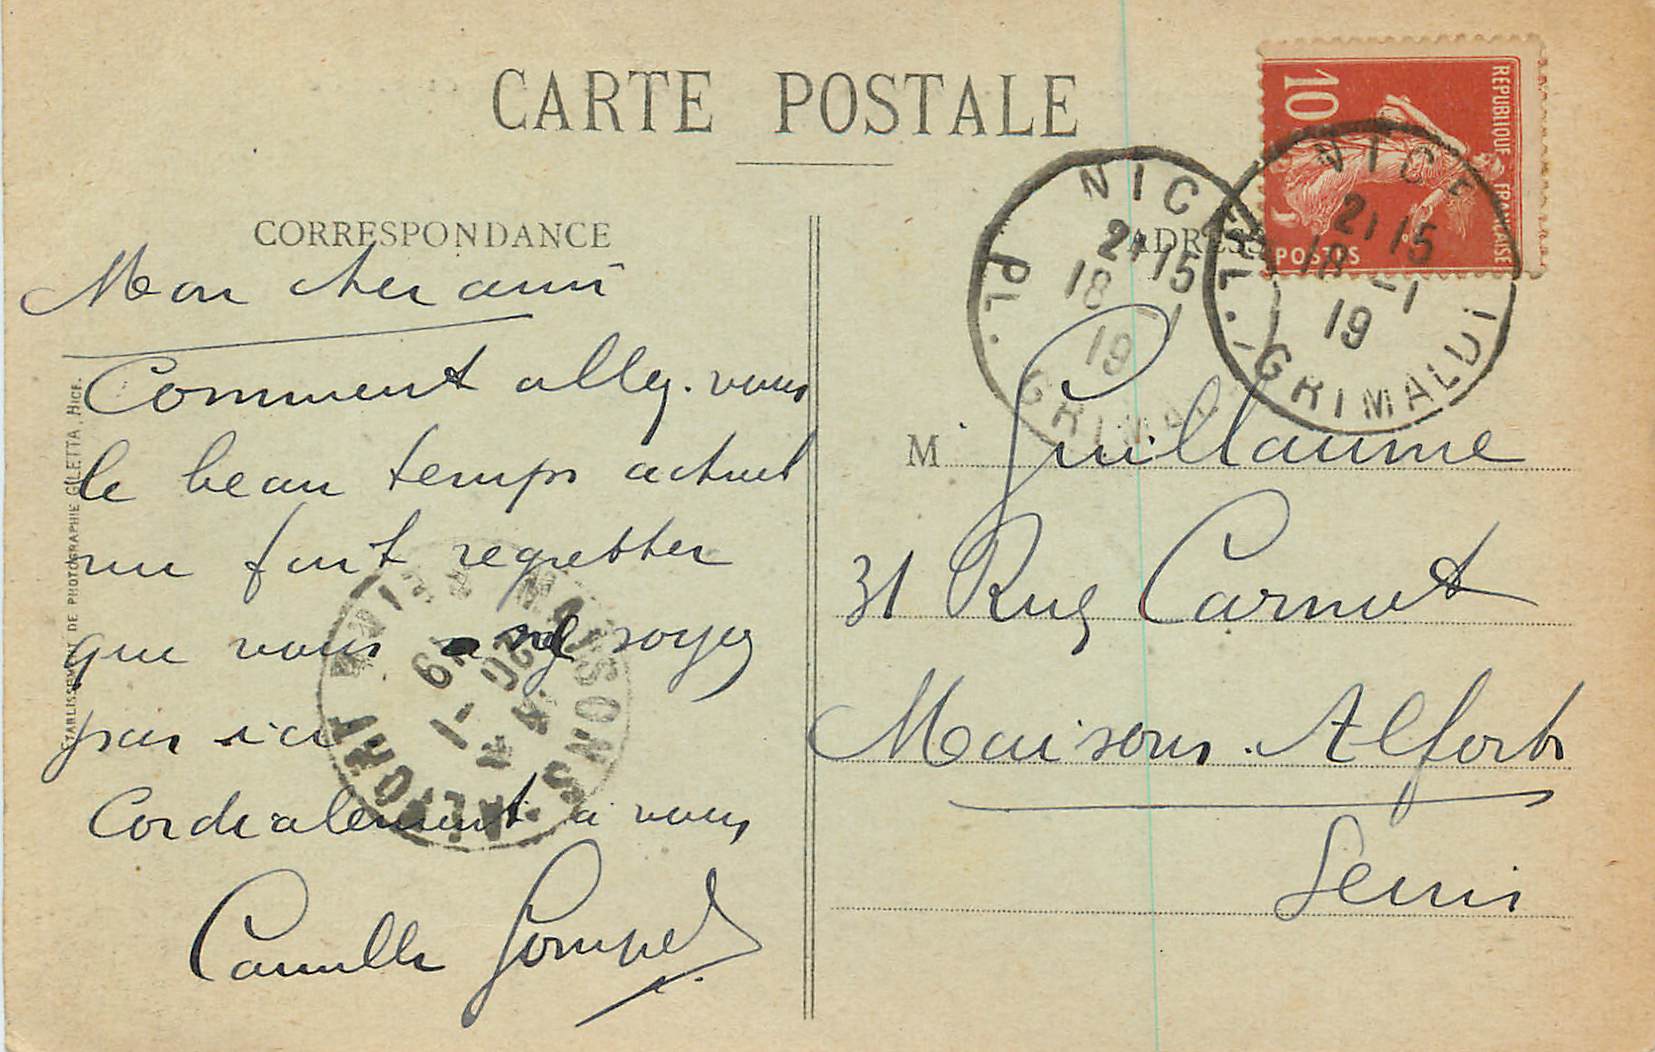 CARTE POSTALE
CORRESPONDANCE
ADRESSE
Mon cher ami
Comment allez-vous
le beau temps actuel
me fait regretter
que vous ne soyez
pas ici
Cordialement à vous
Camille
M Guillaume
31 Rue Carnot
Maisons-Alfort
Seine
ETABLISSEMENT DE PHOTOGRAPHIE GILETTA, NICE.
REPUBLIQUE FRANÇAISE
10
POSTES
NICE
21 15
18 -1
19
PL. GRIMALDI
NICE
21 15
18 -1
19
PL. GRIMALDI
MAISONS-ALFORT
20 -1
19